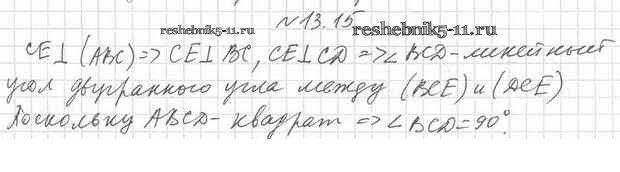 №13.15
reshebnik5-11.ru
reshebnik5-11.ru
CE⊥(ABC)=> CE⊥BC, CE⊥CD =>∠BCD-линейный
угол двугранного угла между (BCE) и (DCE)
Поскольку ABCD-квадрат =>∠BCD=90°.